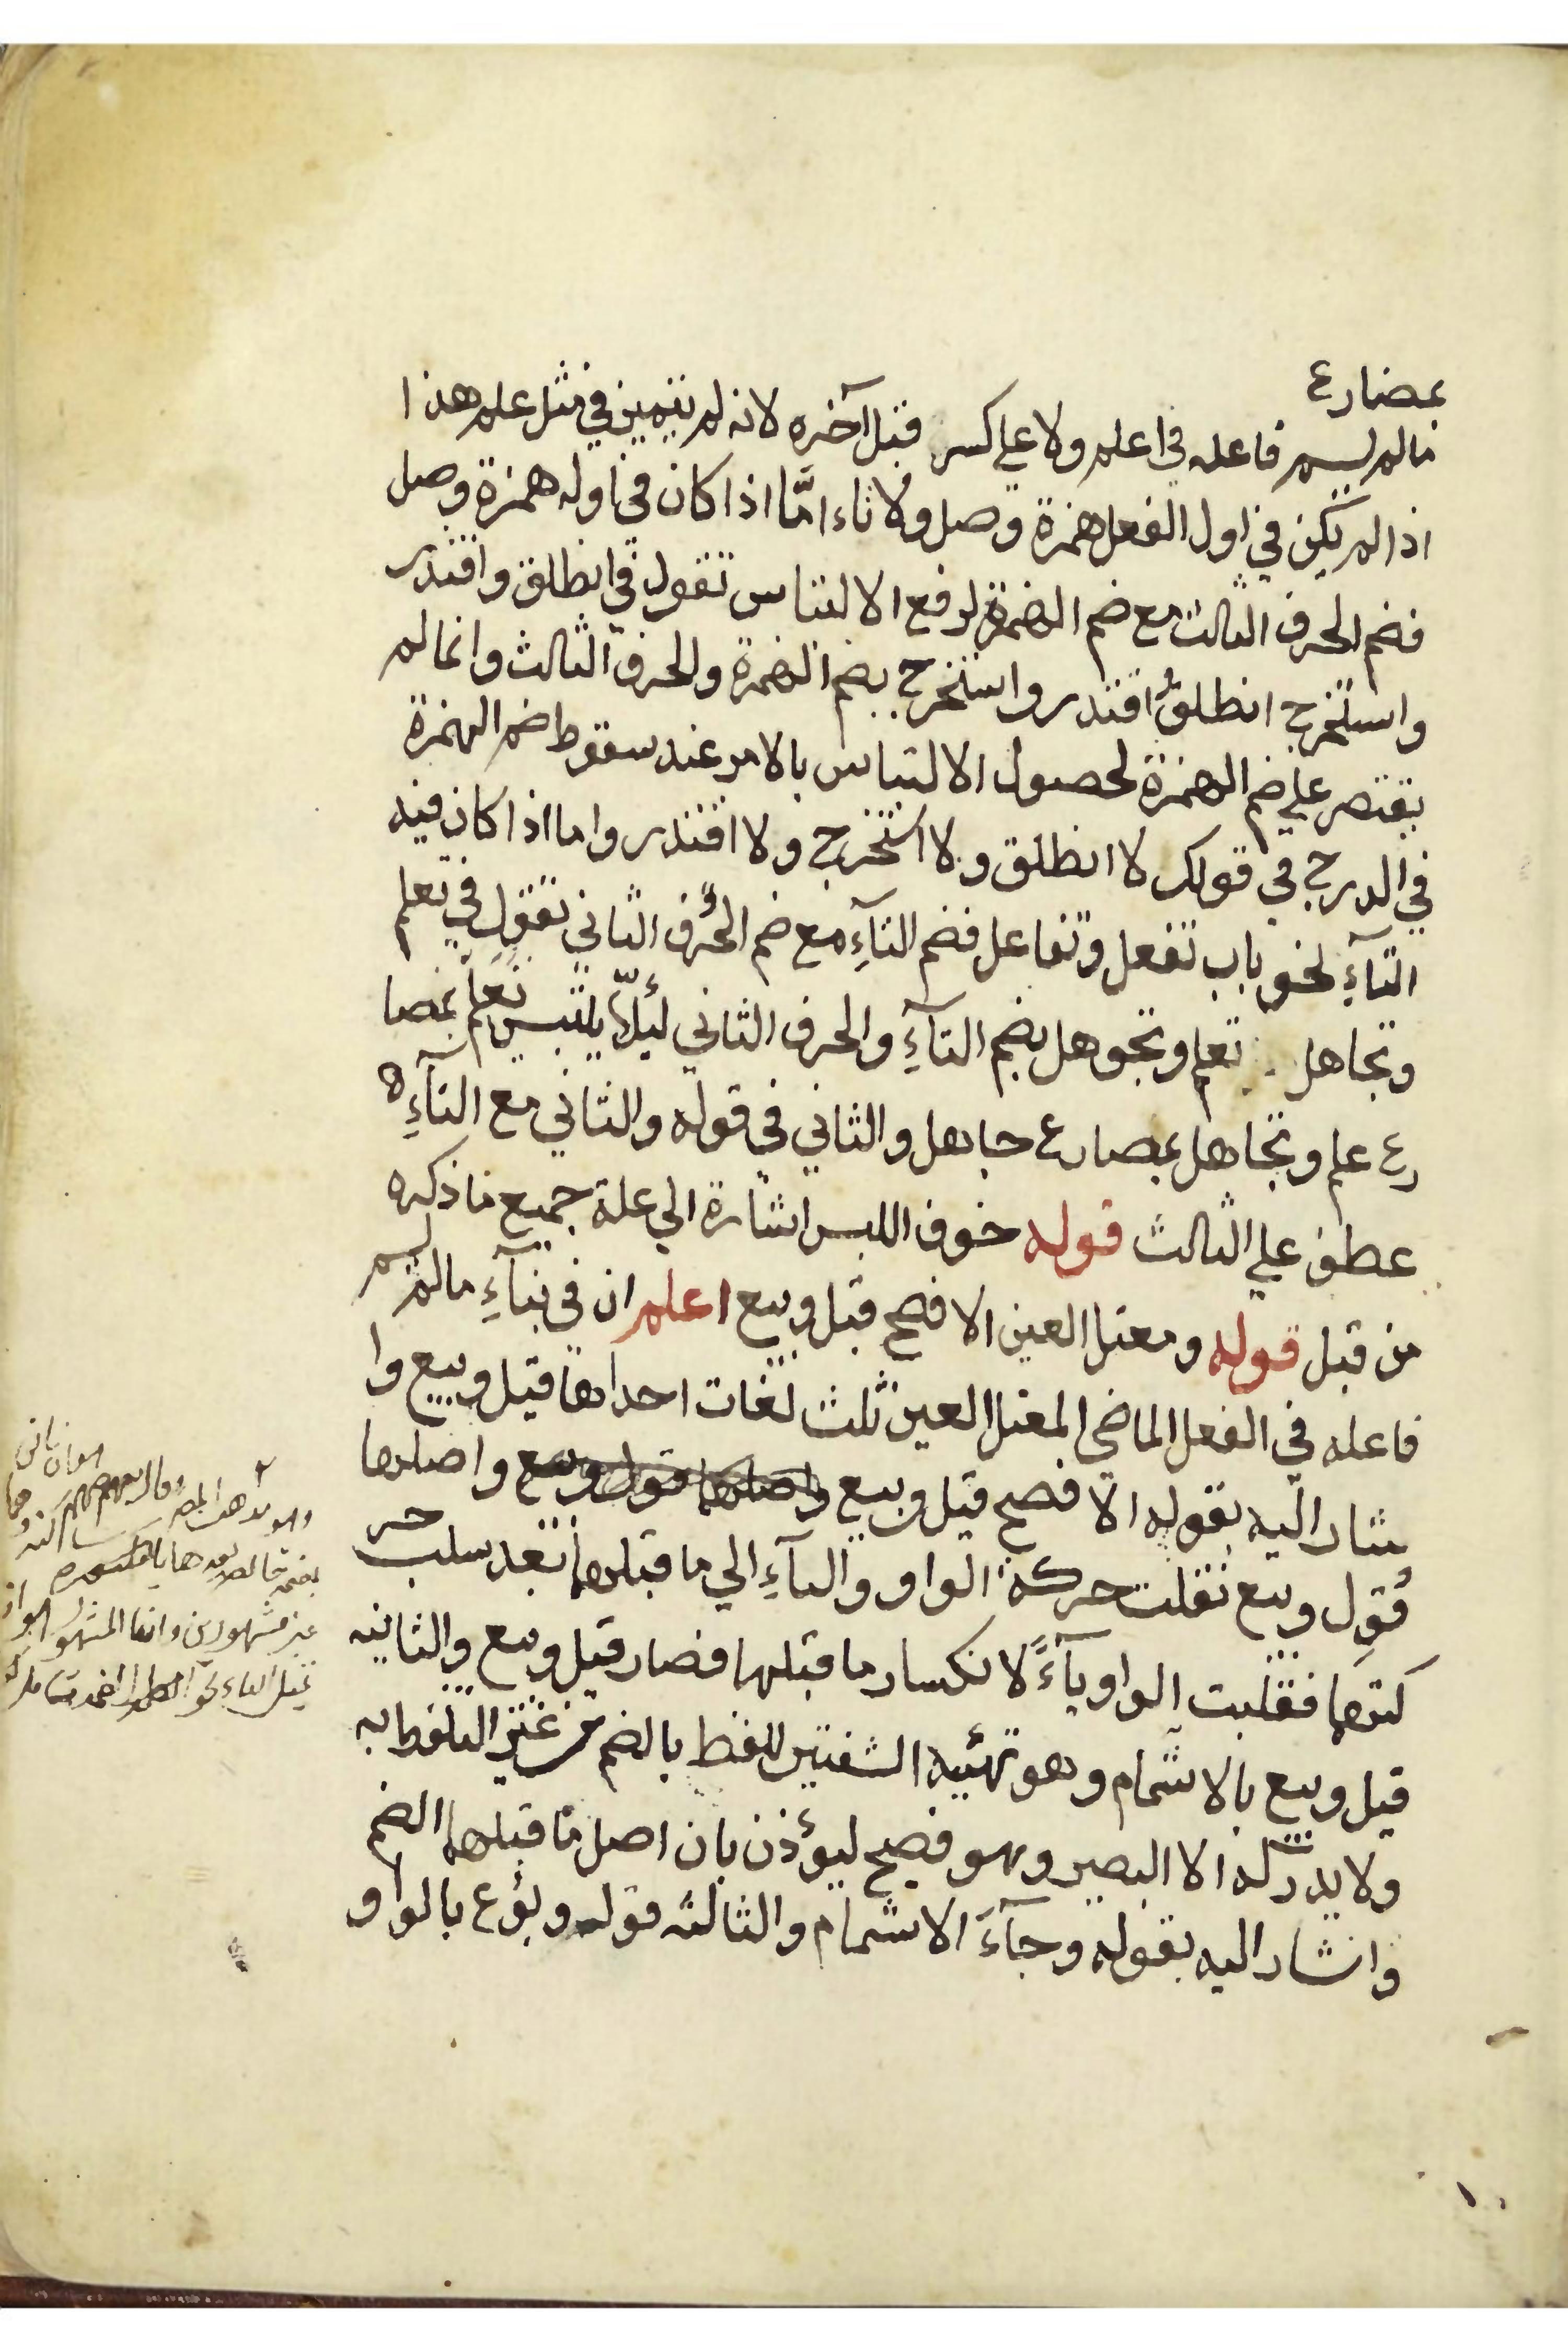 بمضارع
مالم يسم فاعله في اعلم ولا علي كسر قبل آخره لانه لم يتميز في مثل علم هذا
اذا لم يكن في اول الفعل همزة وصل ولا تاء امّا اذا كان في اوله همزة وصل
فضم الحرف الثالث مع ضم الهمزة لرفع الالتباس تقول في انطلق واقتدر
واستخرج انطلق اقتدر واستخرج بضم الهمزة والحرف الثالث وانما لم
يقتصر علي ضم الهمزة لحصول الالتباس بالامر عند سقوط ضم الهمزة
في الدرج في قولك لا انطلق ولا استخرج ولا اقتدر واما اذا كان فيه
التآءِ نحو باب تفعل وتفاعل فضم التآءِ مع ضم الحرف الثاني تقول في تعلم
وتجاهل تعلم وتجوهل بضم التآءِ والحرف الثاني لئلّا يلتبس تعلم بمضا
رع علم وتجاهل بمضارع جاهل والثاني في قوله والثاني مع التآءِ
عطف علي الثالث قوله خوف اللبس اشارة الي علة جميع ما ذكره
من قبل قوله ومعتل العين الافصح قيل وبيع اعلم ان في بنآءِ مالم يسم
فاعله في الفعل الماضى المعتل العين ثلث لغات احداها قيل وبيع وا
شار اليه بقوله الافصح قيل وبيع واصلهما قول وبيع واصلهما
قُوِل وبيع نقلت حركة الواو واليآءِ الي ما قبلهما بعد سلب حر
كتهما فقلبت الواو يآءً لانكسار ما قبلهما فصار قيل وبيع والثانيه
قيل وبيع بالاشمام وهو تهئيه الشفتين للفظ بالضم من غير التلفظ به
ولا يدركه الا البصير وهو فصيح ليؤذن بان اصل ما قبلهما الضم
واشار اليه بقوله وجآءَ الاشمام والثالثه قوله وبُوع بالواو